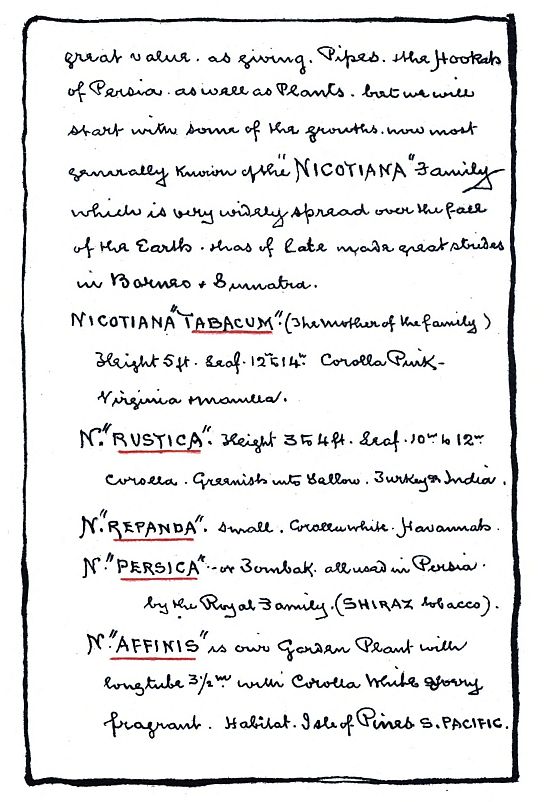 great value. as giving. Pipes. the Hookah
of Persia. as well as Plants. but we will
start with some of the growths. now most
generally known of the "NICOTIANA" Family
which is very widely spread over the face
of the Earth. & has of late made great strides
in Borneo & Sumatra.
NICOTIANA "TABACUM". (The Mother of the family)
Height 5 ft. Leaf. 12 to 14in Corolla Pink-
Virginia & Manilla.
N. "RUSTICA". Height 3 to 4 ft. Leaf. 10in to 12in
Corolla. Greenish into Yellow. Turkey & India.
N. "REPANDA". small. Corolla white. Havannah.
N. "PERSICA" - or Tombak. all used in Persia.
by the Royal Family. (SHIRAZ tobacco).
N. "AFFINIS" is our Garden Plant with
long tube 3½in with Corolla White & very
fragrant. Habitat. Isle of Pines S. PACIFIC.